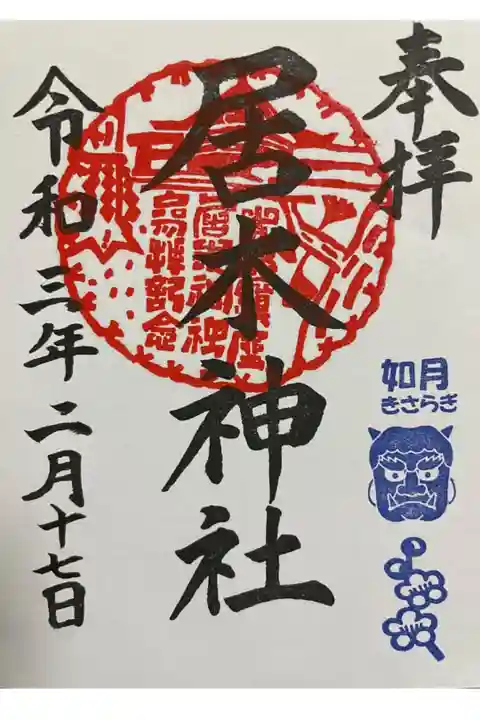 奉拝
如月
きさらぎ
居木神社
令和三年二月十七日